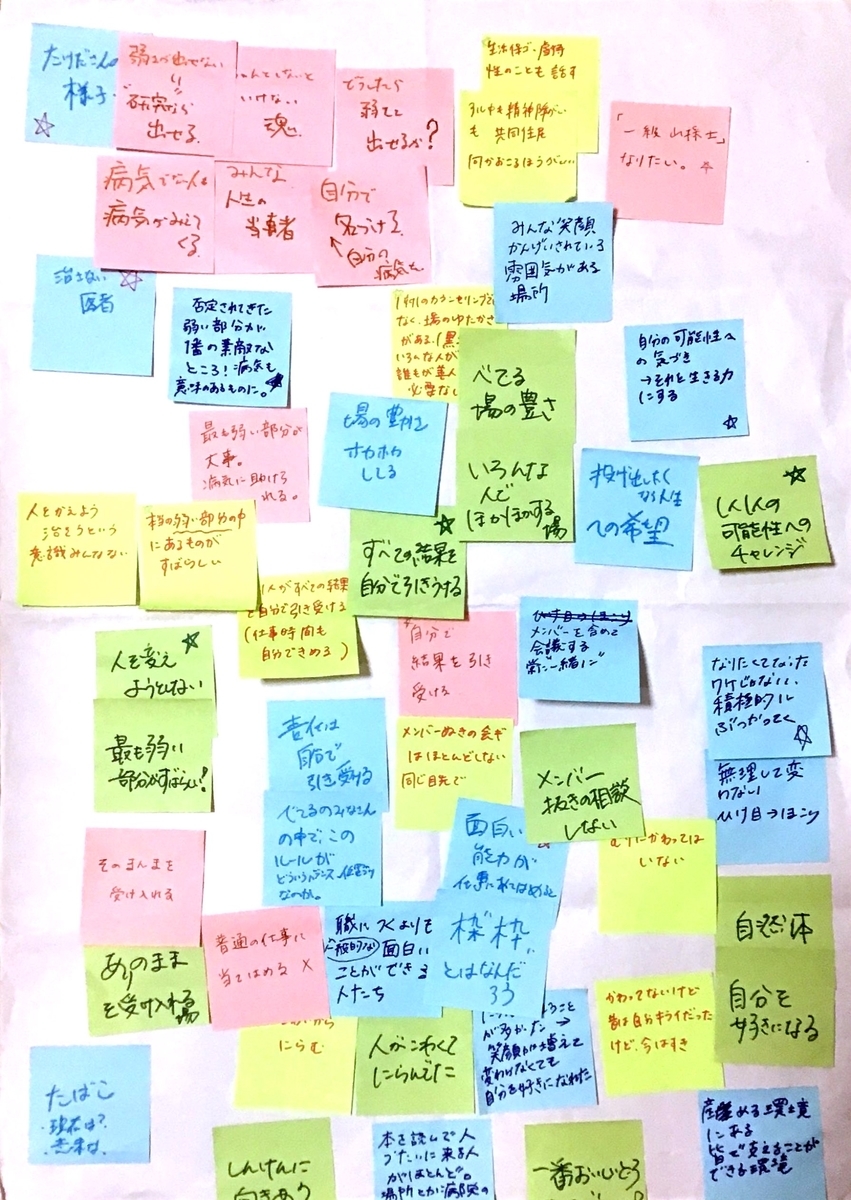 たけださんの
様子
弱さが出せない
研究なら
出せる
いけない
魂
どうしたら
弱さって
出せるか?
生活保護・虐待
性のことも話す
も 共同住居
何かおこるほうがいい
なりたい。
病気で
病気がみえて
くる
みんな
人生の
当事者
自分で
名づける
自分の
病気を
みんな笑顔
かんげいされている
雰囲気がある
場所
治せない
医者
否定されてきた
弱い部分が
1番の素敵な
ところ!病気も
意味のあるものに。
なく、場のゆたかさ
がある。
いろんな人が
誰もが善人
必要なし
べてる
場の豊さ
自分の可能性へ
の気づき
→それを生きる力
にする
最も弱い部分が
大事。
病気に助けら
れる。
場の豊かさ
ホカホカ
してる
いろんな
人で
ほかほかする
場
投げ出したく
なる人生
への希望
1人1人の
可能性への
チャレンジ
人をかえよう
治そうという
意識みんなない
の弱い部分の中
にあるものが
すばらしい
すべての結果を
自分で引きうける
1人がすべての結果
を自分で引き受ける
(仕事時間も
自分できめる)
自分で
結果を引き
受ける
メンバーを含めて
会議する
常に"一緒に"
人を変え
ようとしない
なりたくてなった
ワケじゃない、
積極的に
ぶつかってく
最も弱い
部分がすばらしい!
責任は
自分で
引き受ける
メンバーぬきの会ギ
はほとんどしない
同じ目元で
メンバー
抜きの相談
しない
無理して変
わらない
ひけ目→ほこり
べてるのみなさん
の中で、この
ルールが
なのか。
面白い
能力が
むりにかわっては
いない
そのまんまを
受け入れる
普通の仕事に
当てはめる ×
職につくよりも
(一般的な)面白い
ことができる
人たち
枠"枠"
とはなんだ
ろう
自然体
ありのまま
を受け入れる
場
自分を
好きになる
にらむ
人がこわくて
にらんでた
笑顔が増えて
変わらなくても
自分を好きになれた
かわってないけど
昔は自分キライだった
けど、今はすき
たばこ
・現在は?
にある
皆で支えることが
できる環境
しんけんに
向きあう
本を読んで人
づたいに来る人
がほとんど。
一番おいしいところ